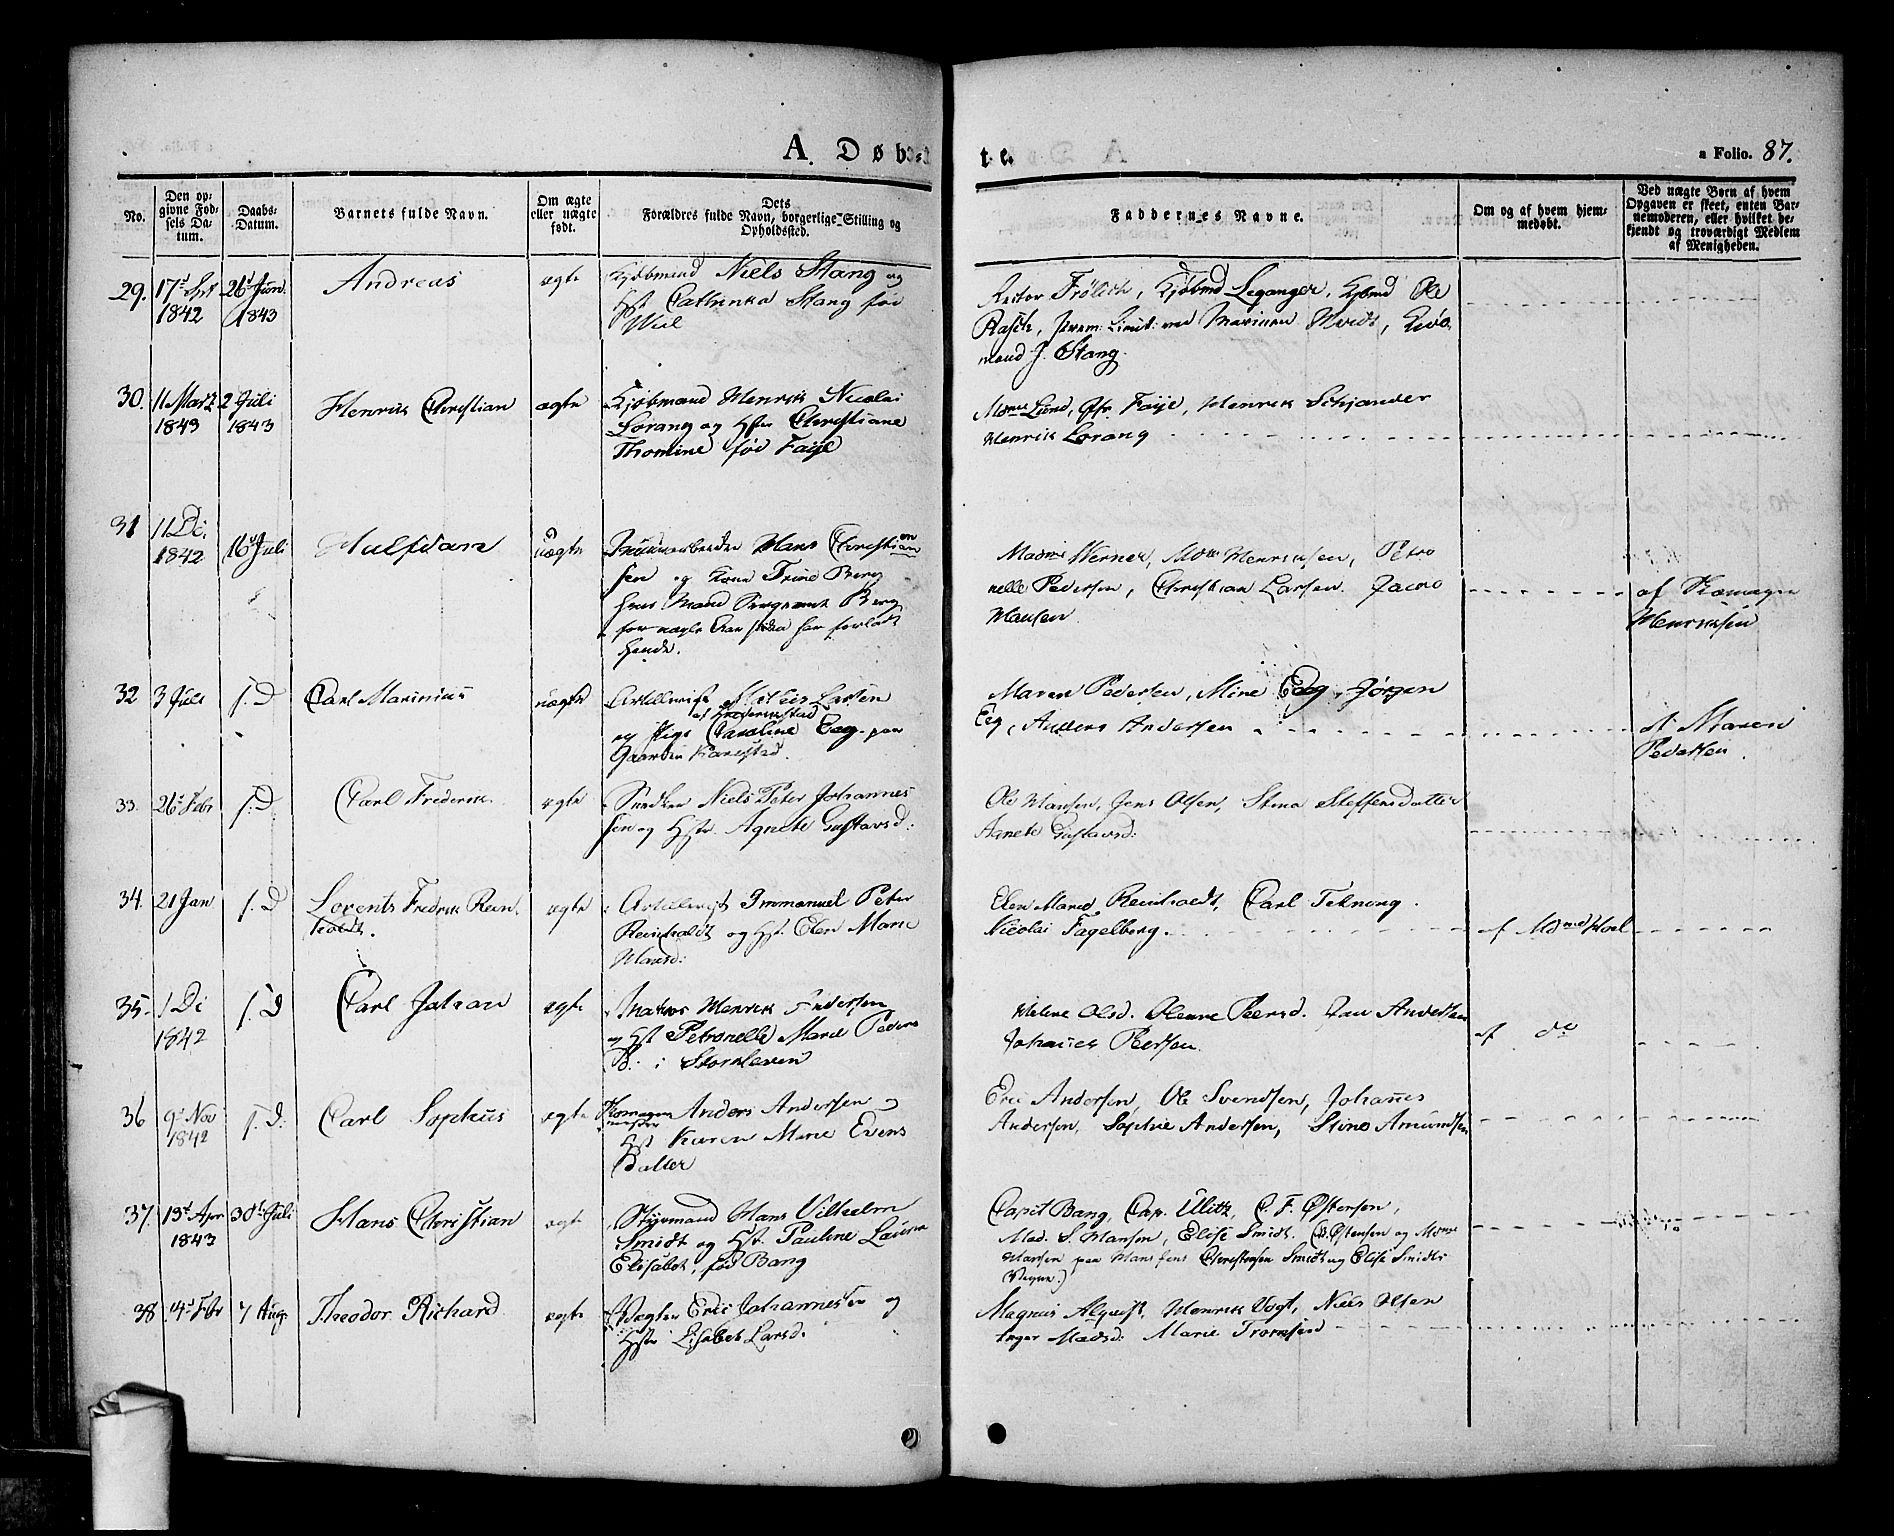 A. Døbte.
a Folio. 87.
No.
Den opgivne Fødsels Datum.
Daabs-Datum.
Barnets fulde Navn.
Om ægte eller uægte født.
Dets Forældres fulde Navn, borgerlige Stilling og Opholdssted.
Faddernes Navne.
Om og af hvem hjemmedøbt.
Ved uægte Børn af hvem Opgaven er skeet, enten Barnemoderen, eller hvilket bekjendt og troværdigt Medlem af Menigheden.
29. 17d 1842 26d Jun. 1843 Andreas ægte Kjøbmand Niels Stang og
Hst Cathrinka Stang før
Wiel
Frölich, Kjøbmd Leganger, Kjbmd Ole
Rasch, Marinen
mand J. Stang.
30. 11 Marz 1843 2 Juli 1843 Henrik Christian ægte Kjøbmand Henrik Nicolai
Lorang og Hstr Christiane
Thomine fød Faye
Mdme Lund, Jfr. Faije, Henrik Schjander
Henrik Lorang
31 11 De. 1842 16d Juli Halfdan uægte Tømmerbeder Hans Christian
sen og Kone Trine Berg
hvis Mand Sergeant Berg
for nogle Aar siden har forladt
hende.
Madme Werner, Mdm Henriksen, Petro
nelle Pedersen, Christian Larsen. Jacob
Hansen.
af
Henriksen
32 3 Juli s. D Carl Marinius uægte Artillerist Larsen
af Frederikstad
og Pige Caroline Eeg paa
Gaarden
Maren Pedersen, Mine Eeg, Jørgen
Eeg, Anders Andersen
af Maren
Pedersen.
33. 26d Febr s. D. Carl Frederik. ægte Snedker Niels Peter Johannes
sen og Hstr. Agnete Gustavsd:
Ole Hansen, Jens Olsen, Stina Steffensdatter
Agnete Gustavsd:
34. 21 Jan s. D Lorents Fredrik Rein
holdt. ægte Artillerist Immanuel Peter
Reinholdt og Hst. Elen Marie
Hansd:
Elen Marie Reinholdt, Carl Teknong.
Nicolai Fagelberg. af Mdme Hoel
35. 1 De 1842 s. D Carl Johan ægte Matros Henrik Andersen
og Hst Petronelle Marie Peders
D. i Storkleven
Helene Olsd. Olene Peersd. Jan Andersen
Johannes Peersen. af do
36 9d Nov 1842 s. D. Carl Sophus ægte Anders Andersen og
Hst Karen Marie Evens
Datter
Eric Andersen, Ole Svendsen, Johannes
Andersen, Sophie Andersen, Stine Amundsen
37. 13d Apr 1843 30d Juli Hans Christian ægte Styrmand Hans Vilhelm
Smidt og Hst. Pauline Laura
Elisabet, fød Bang
Capit Bang, Cap. Ulitz, C. F. Østensen,
Mad. S. Hansen, Elise Smidt. (C. Østensen og Mdme
Hansen paa Hans Jens Christensen Smidt og Elise Smidts
Vegne.)
38 14d Febr 7 Aug. Theodor Richard ægte Vægter Eric Johannesen og
Hstr Lisabet Larsd.
Magnus Alqvist, Henrik Vogt, Niels Olsen
Inger Madsd: Marie